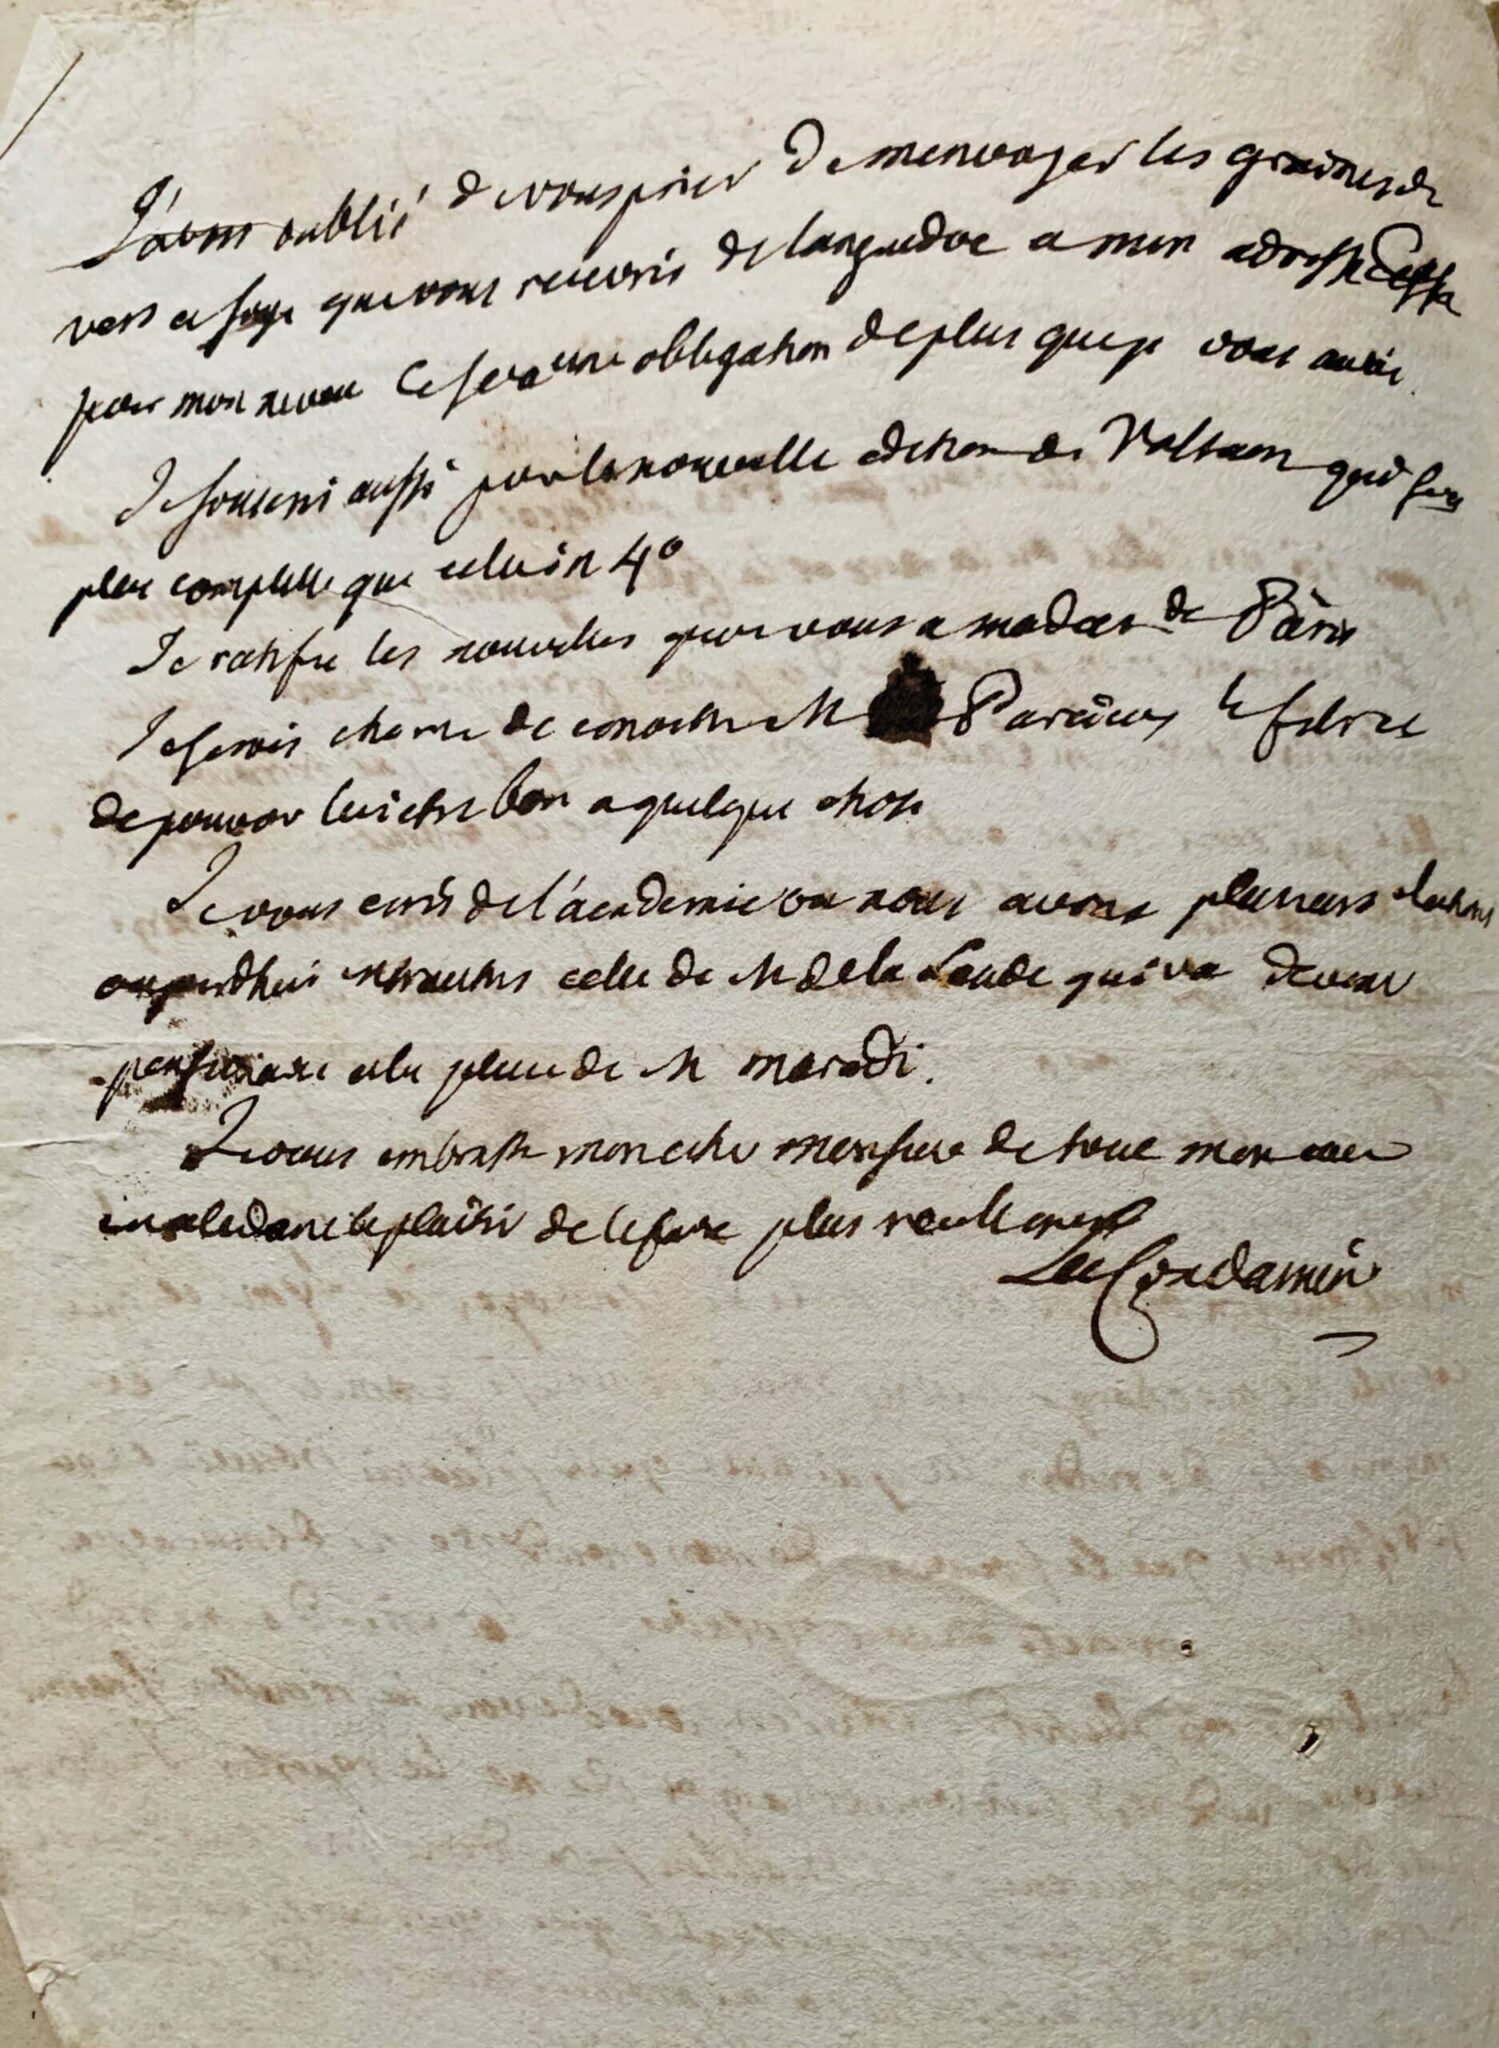 J'avois oublié de vous prier de menvoyer les graines de
vers a soye que vous recevrés de languedoc a mon adresse
pour mon neveu Ce sera une obligation de plus que je vous aurai
Je souscris aussi pour la nouvelle edition de Voltaire qui sera
plus complette que celle in 4º
Je ratifie les nouvelles que vous a madees de Pâris
Je serois charmé de conoitre M Parcieux le fils et
de pouvoir lui etre bon a quelque chose
Je vous ecris de l'academie ou nous avons plusieurs elections
aujourdhui entrautres celle de M de la Lande qui va devenir
pensionaire a la place de M maraldi.
Je vous embrasse mon cher monsieur de tout mon coeur
le plaisir de le faire plus reellement
La Condamine